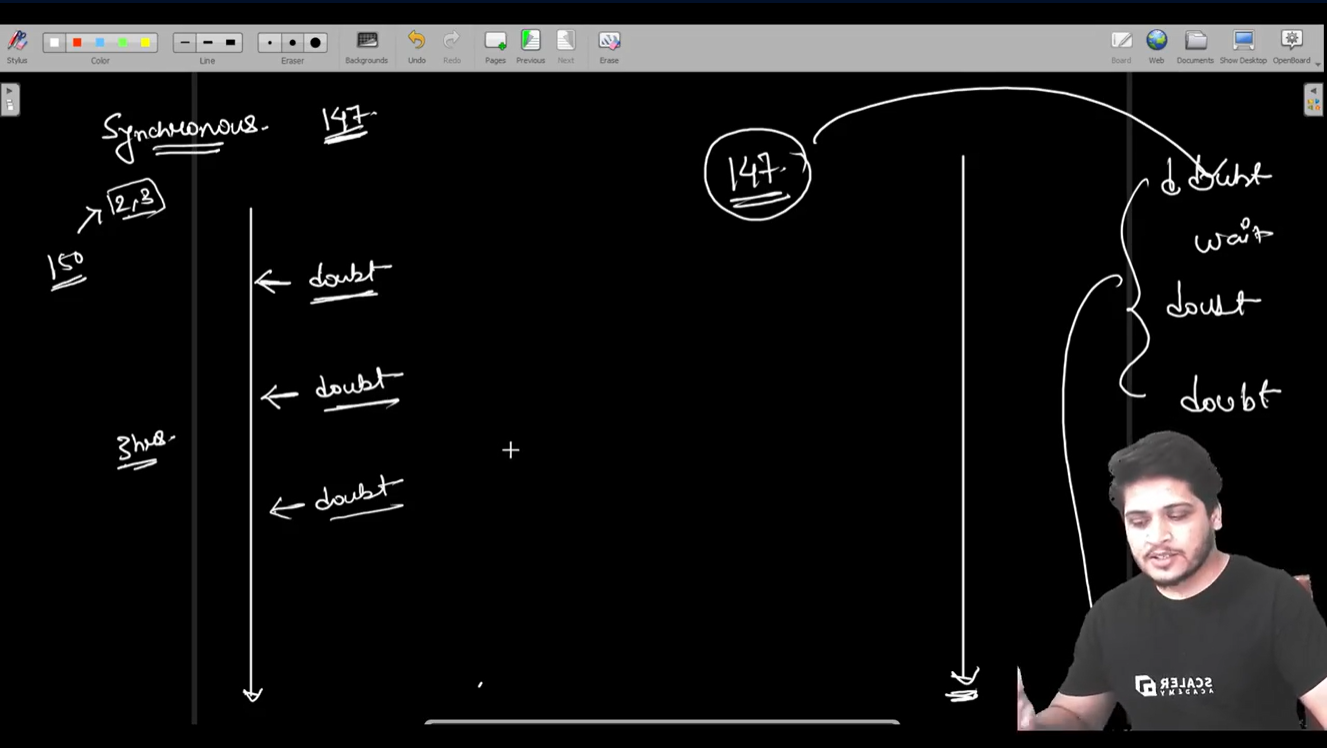 Stylus
Color
Line
Eraser
Backgrounds
Undo
Redo
Pages
Previous
Next
Erase
Board
Web
Documents
Show Desktop
OpenBoard
Synchronous. 147.
2,3
150
doubt
doubt
3hrs.
doubt
147.
d doubt
wait
doubt
doubt
SCALER
ACADEMY